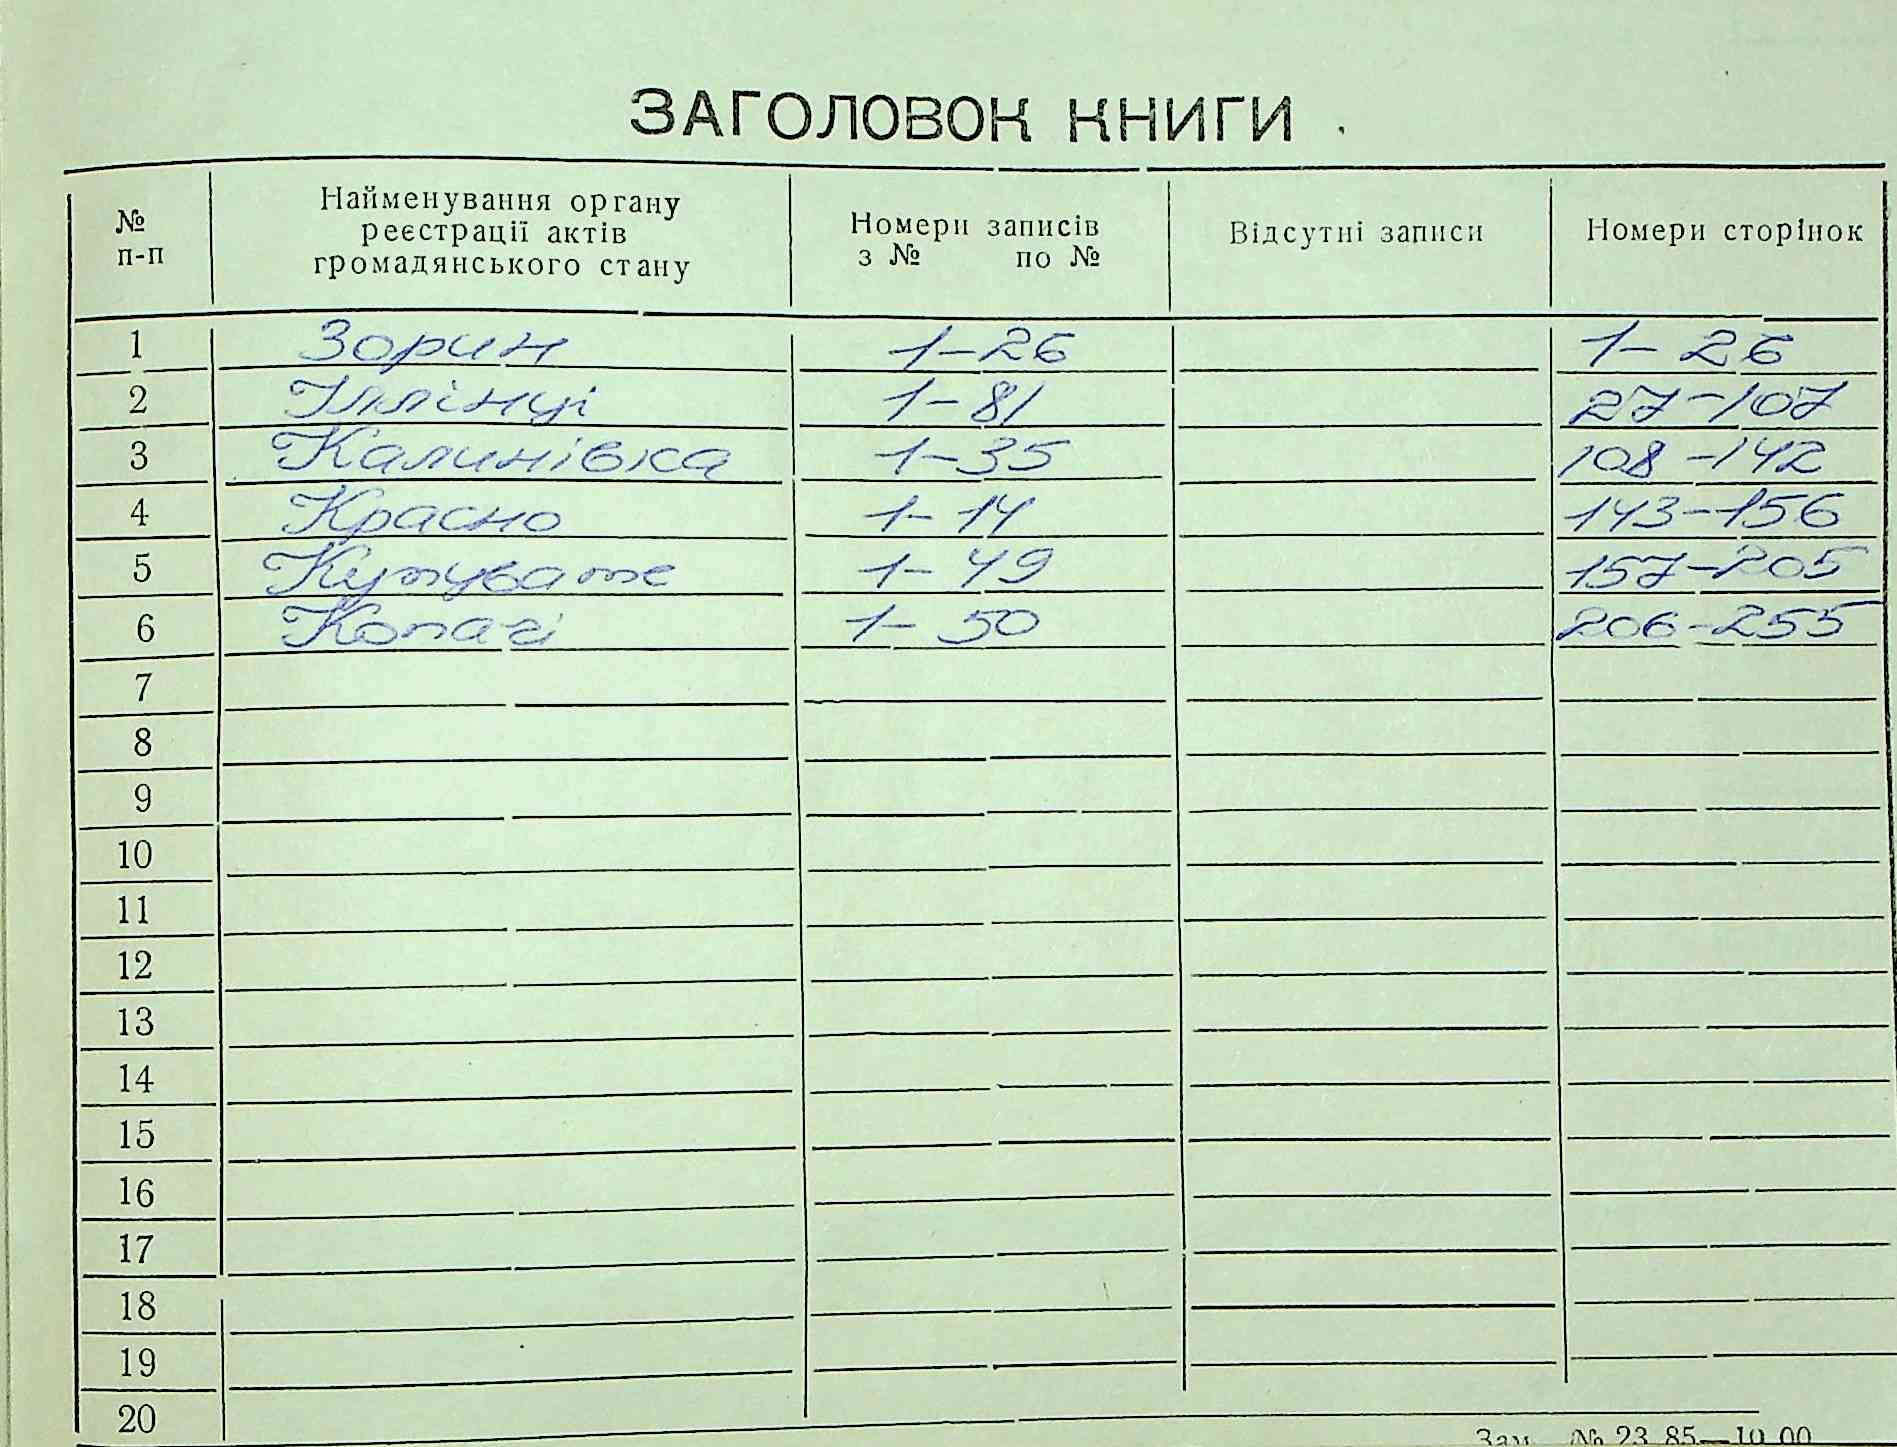 ЗАГОЛОВОК КНИГИ
№ п-п Найменування органу реєстрації актів громадянського стану Номери записів з № по № Відсутні записи Номери сторінок
1 Зорин 1-26 1-26
2 Іллінці 1-81 27-107
3 Калинівка 1-35 108-142
4 Красно 1-14 143-156
5 Купувате 1-49 157-205
6 Копачі 1-50 206-255
7
8
9
10
11
12
13
14
15
16
17
18
19
20
Зам. № 23 85—10.00